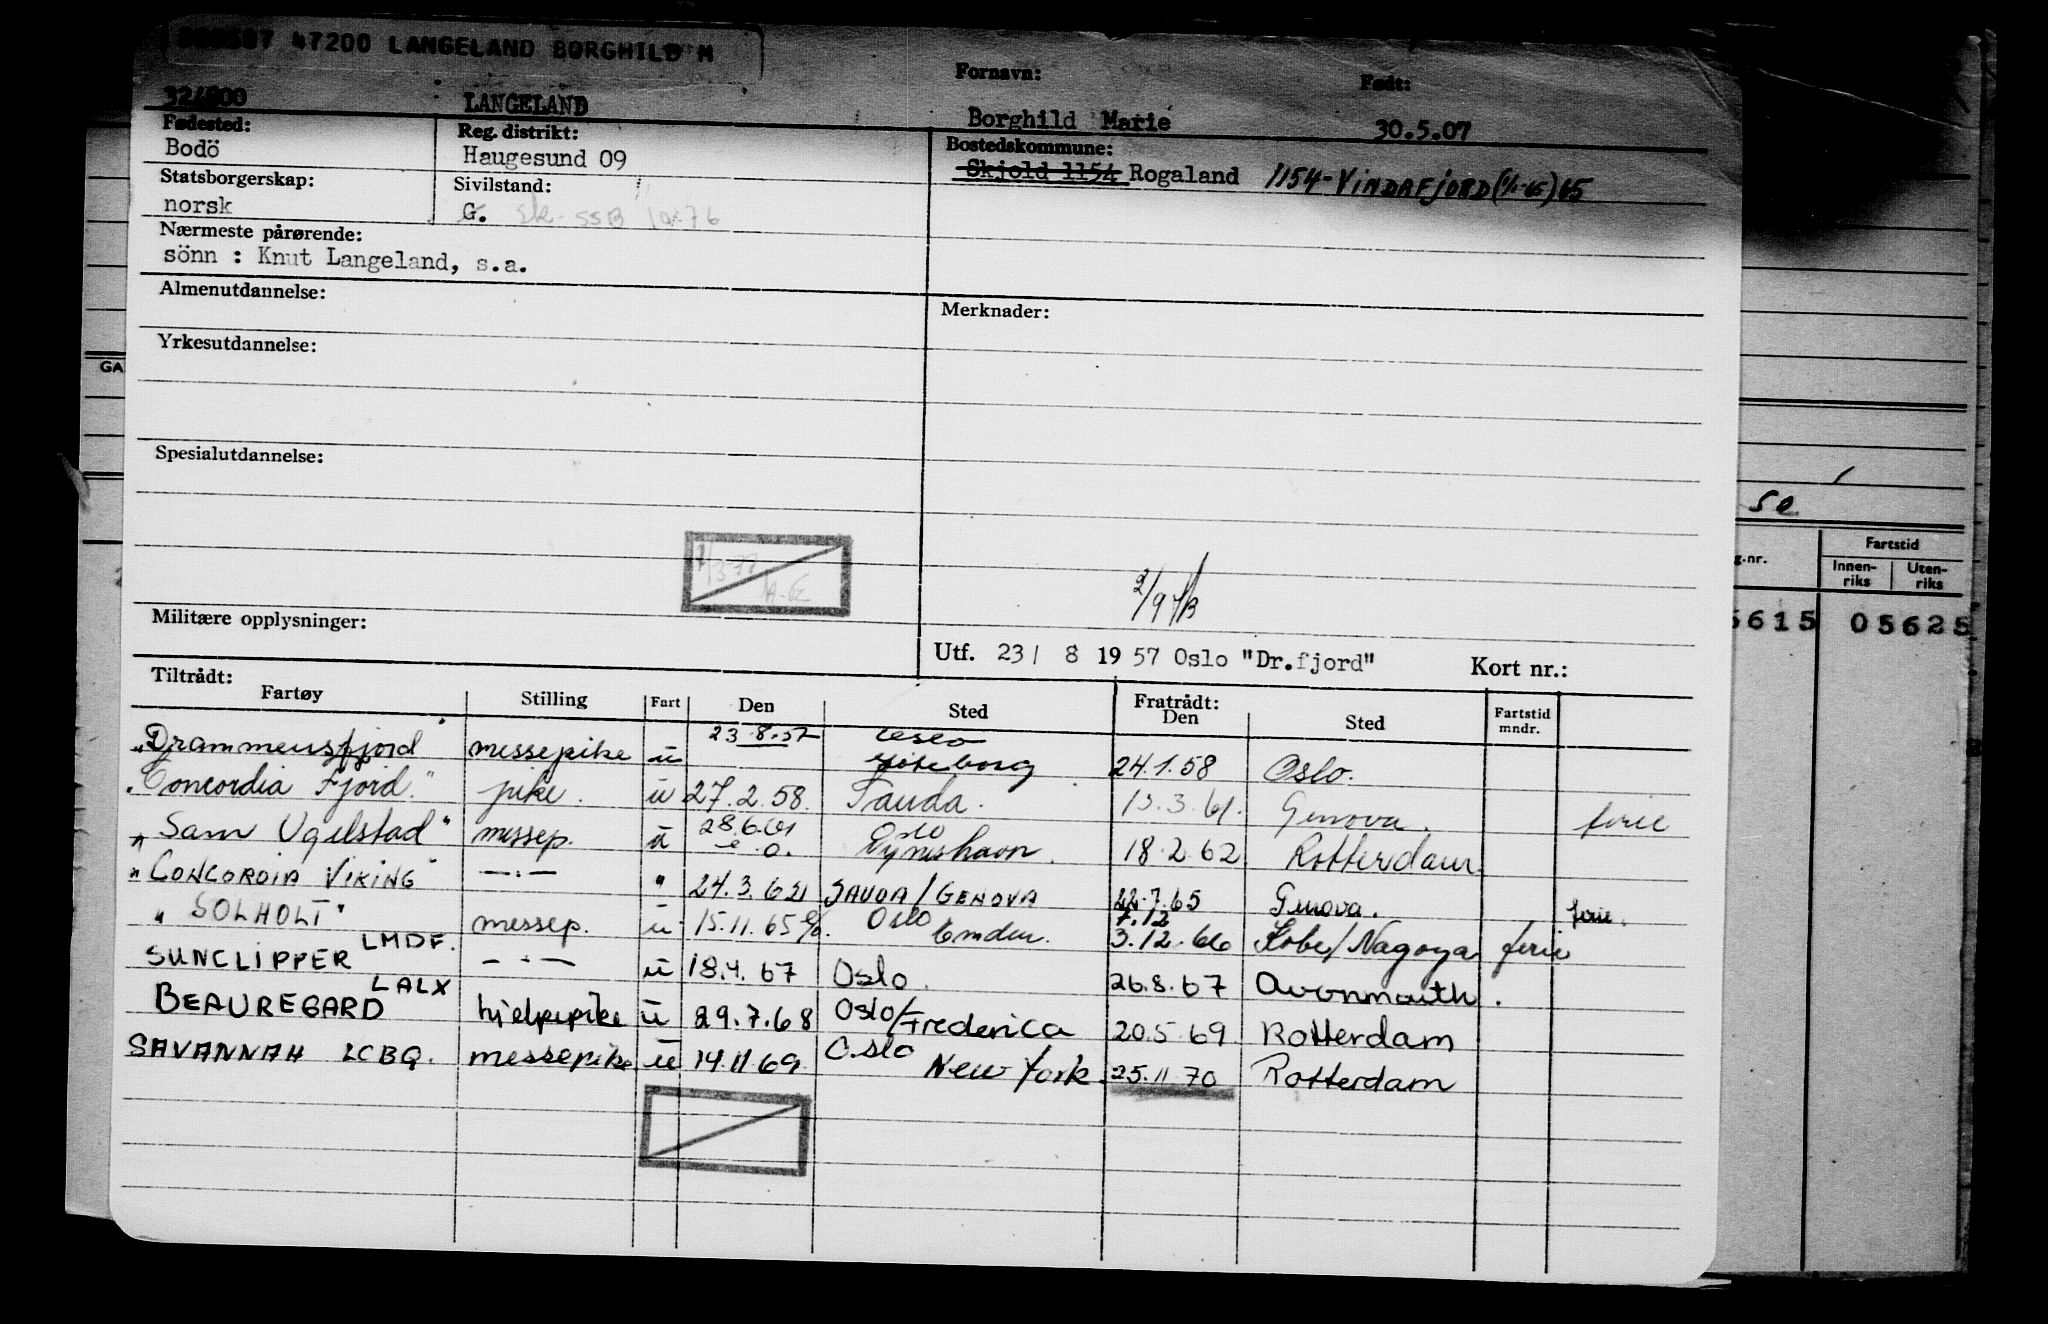 47200 LANGELAND BORGHILD M
Fornavn: Født:
LANGELAND Borghild Marie 30.5.07
Fødested: Reg. distrikt: Bostedskommune:
Bodö Haugesund 09 Skjold 1154 Rogaland 1154-VINDAFJORD (1/1-65) 65
Statsborgerskap: Sivilstand:
norsk G. SSB 10-76
Nærmeste pårørende:
sönn : Knut Langeland, s.a.
Almenutdannelse: Merknader:
Yrkesutdannelse:
GA
Spesialutdannelse:
50
g.nr. Fartstid
Innen-riks Uten-riks
5615 05625
Militære opplysninger:
Utf. 23/ 8 1957 Oslo "Dr.fjord" Kort nr.:
Tiltrådt: Fratrådt:
Fartøy Stilling Fart Den Sted Den Sted Fartstid mndr.
"Drammensfjord messepike u 23.8.57 Oslo Göteborg 24.1.58 Oslo.
"Concordia Fjord." pike. u 27.2.58. Sauda. 15.3.61. Genova. ferie
"Sam Ugelstad" messep. u 28.6.61 Oslo 18.2.62 Rotterdam
"CONCORDIA VIKING" —.— " 24.3.62 SAUDA/GENOVA 22.7.65 Genova. ferie.
" SOLHOLT" messep. u 15.11.65 Oslo Emden. 7.12 3.12.66 Kobe/Nagoya ferie
SUNCLIPPER LMDF. —.— u 18.4.67 Oslo. 26.8.67 Avonmouth.
BEAUREGARD LALX hjelpepike u 29.7.68 Oslo/Fredericia 20.5 69 Rotterdam
SAVANNAH LCBQ. messepike u 14.11.69 Oslo New York 25.11.70 Rotterdam